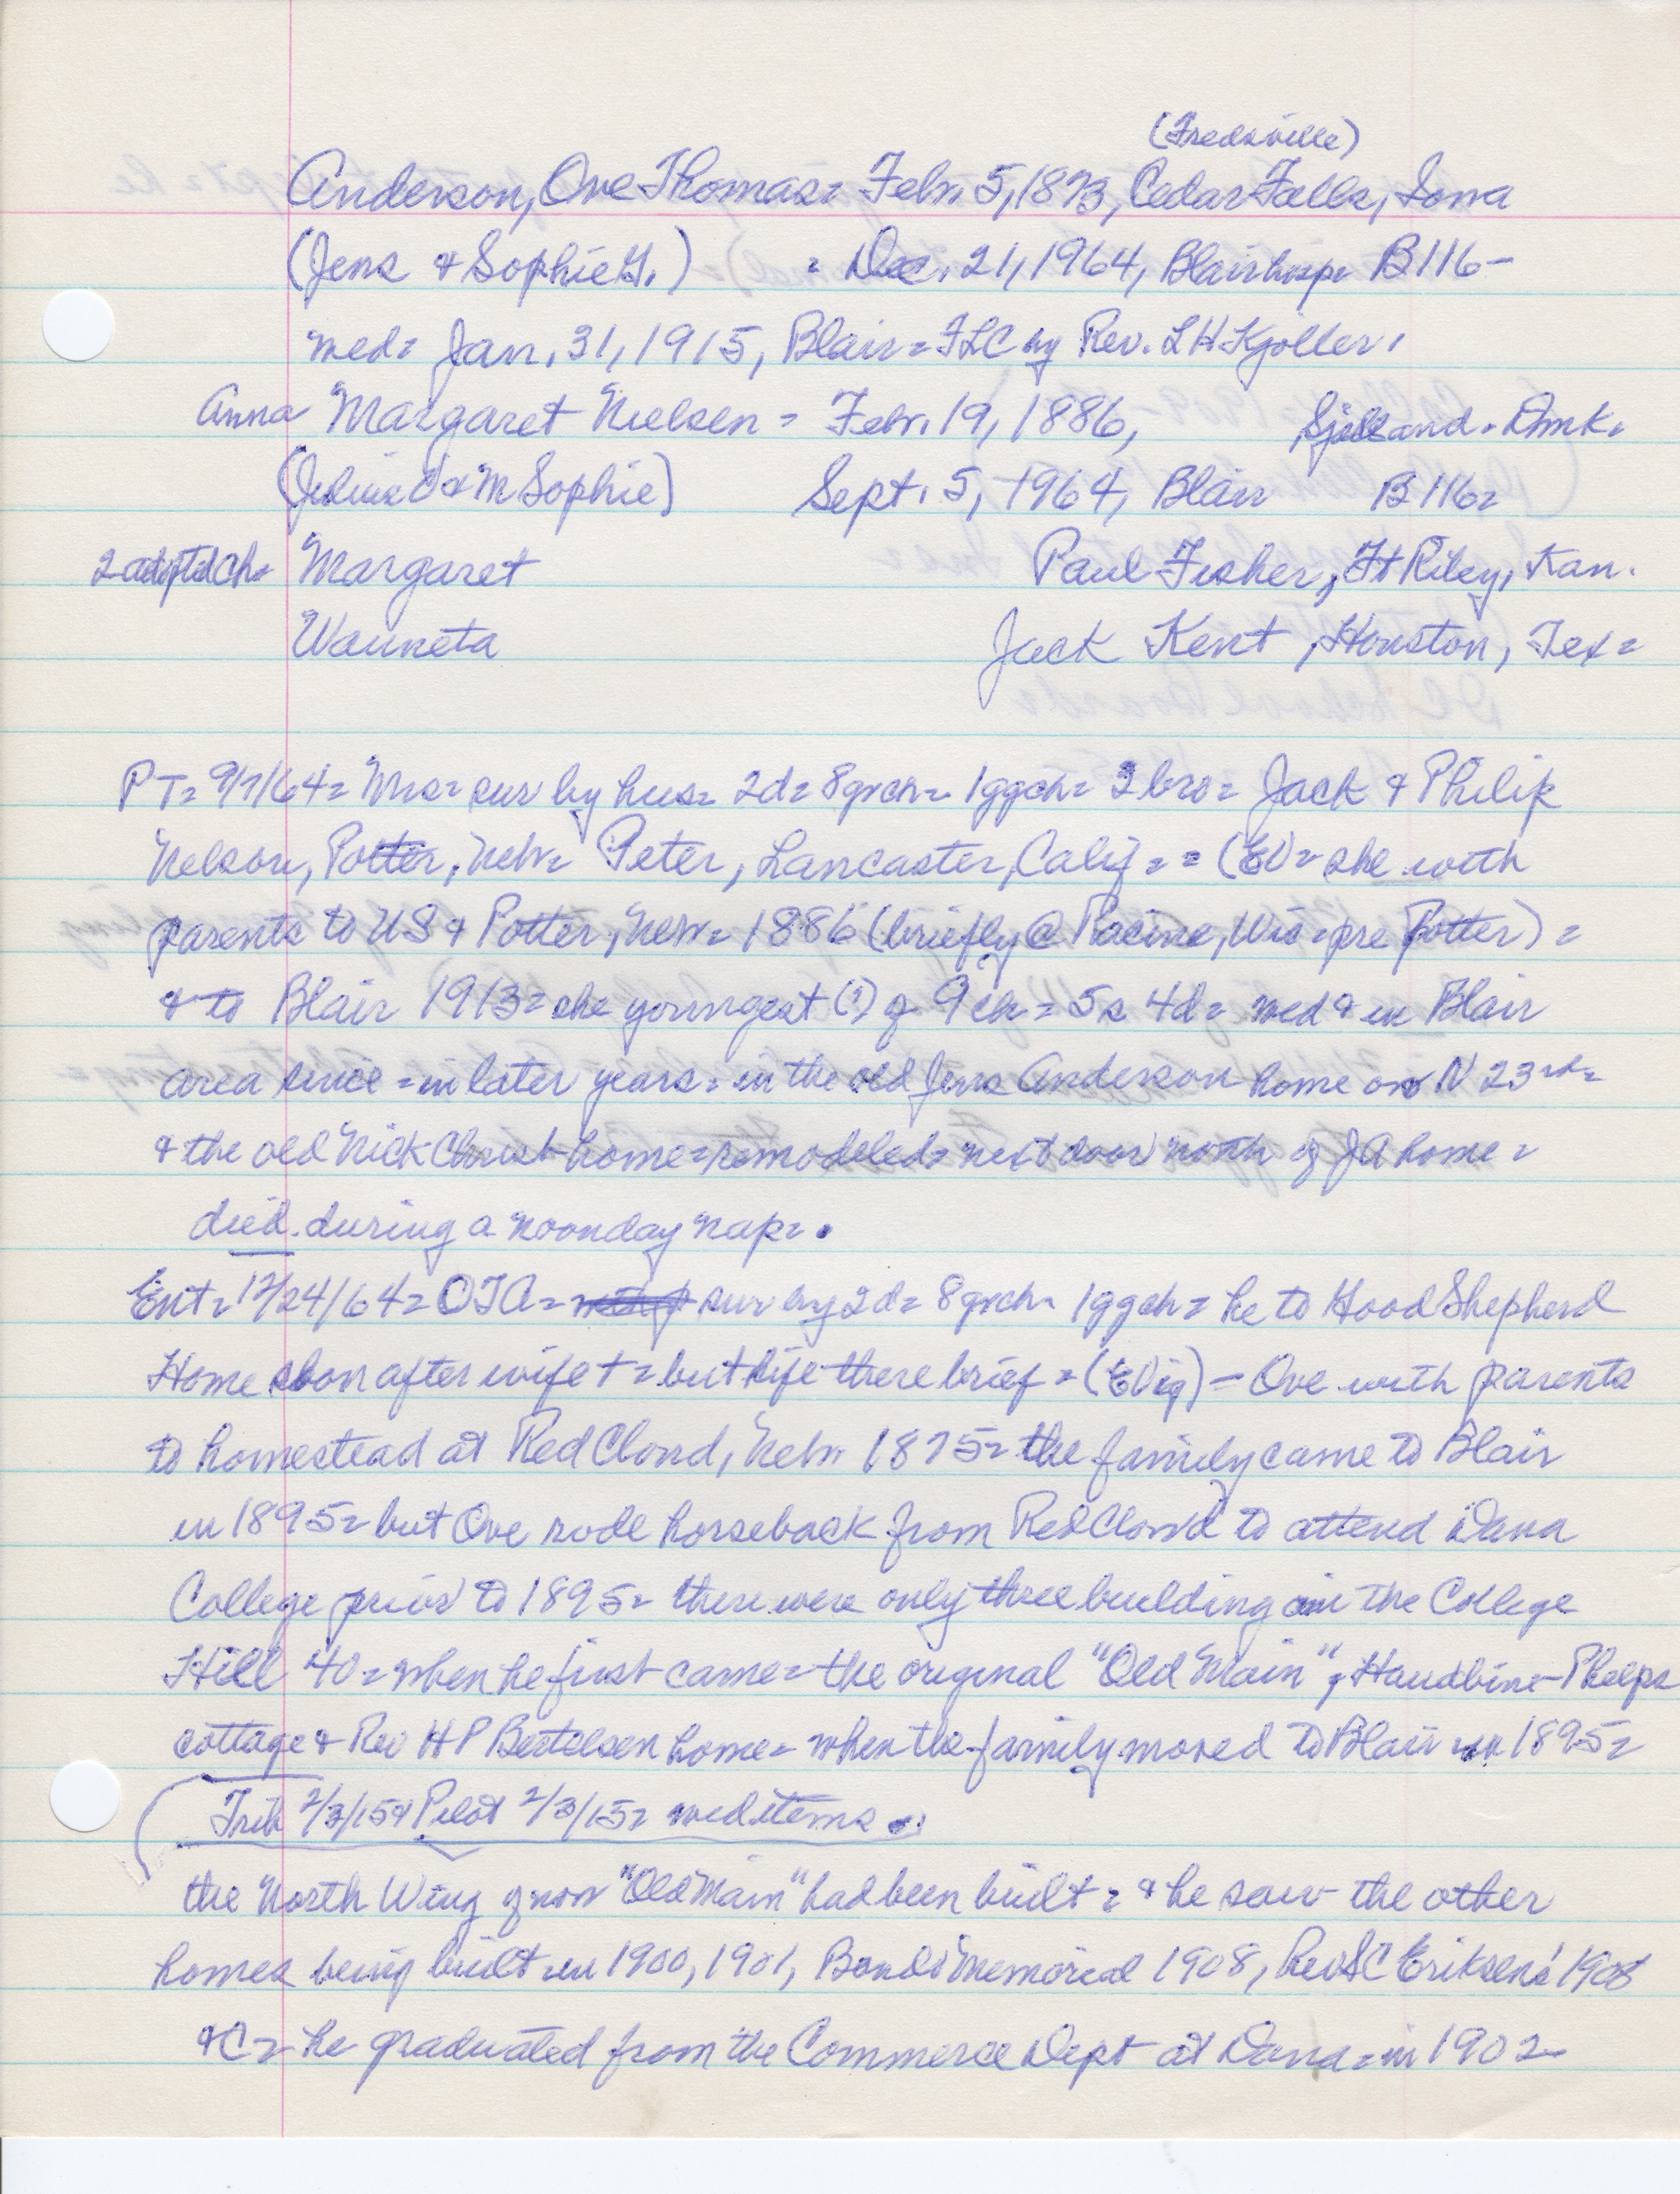 (Fredsville)
Anderson, Ove Thomas= Febr. 5, 1873, Cedar Falls, Iowa
(Jens & Sophie G.) = Dec. 21, 1964, Blair hosp= B116-
med= Jan. 31, 1915, Blair= FLC by Rev. L H Kjoller,
Anna Margaret Nielsen = Febr. 19, 1886, Sjelland. Dmk=
& M Sophie) Sept. 5, 1964, Blair B116=
2 adopted ch= Margaret Paul Fisher, Ft Riley, Kan.
Wauneta Jack Kent, Houston, Tex=
PT= 9/7/64= Mrs= sur by hus= 2d= 8grch= 1ggch= 3 bro= Jack & Philip
Nelson, Potter, Nebr= Peter, Lancaster, Calif= = (EV= she with
parents to US & Potter, Nebr= 1886 (briefly @ Racine, Wis= pre Potter) =
& to Blair 1913= she youngest (?) of 9 ch= 5s 4d= wed & in Blair
area since = in later years= in the old Jens Anderson home on N 23rd=
& the old Nick Christ home= remodeled= next door north of JA home=
died during a noonday nap=.
Ent= 12/24/64= OTA= sur by 2d= 8grch= 1ggch= he to Good Shepherd
Home soon after wife †= but life there brief= (EVig) - Ove with parents
to homestead at Red Cloud, Nebr. 1875= the family came to Blair
in 1895= but Ove rode horseback from Red Cloud to attend Dana
College prior to 1895= there were only three building on the College
Hill 40= when he first came= the original "Old Main", Haudbine-Phelps
cottage & Rev HP Bertelsen home= when the family moved to Blair in 1895=
Trib 2/3/15 & Pilot 2/3/15= wed items.
the North Wing of now "Old Main" had been built= & he saw the other
homes being built in 1900, 1901, Bondo Memorial 1908, Rev SC Eriksens' 1908
&C= he graduated from the Commerce Dept at Dana= in 1902-